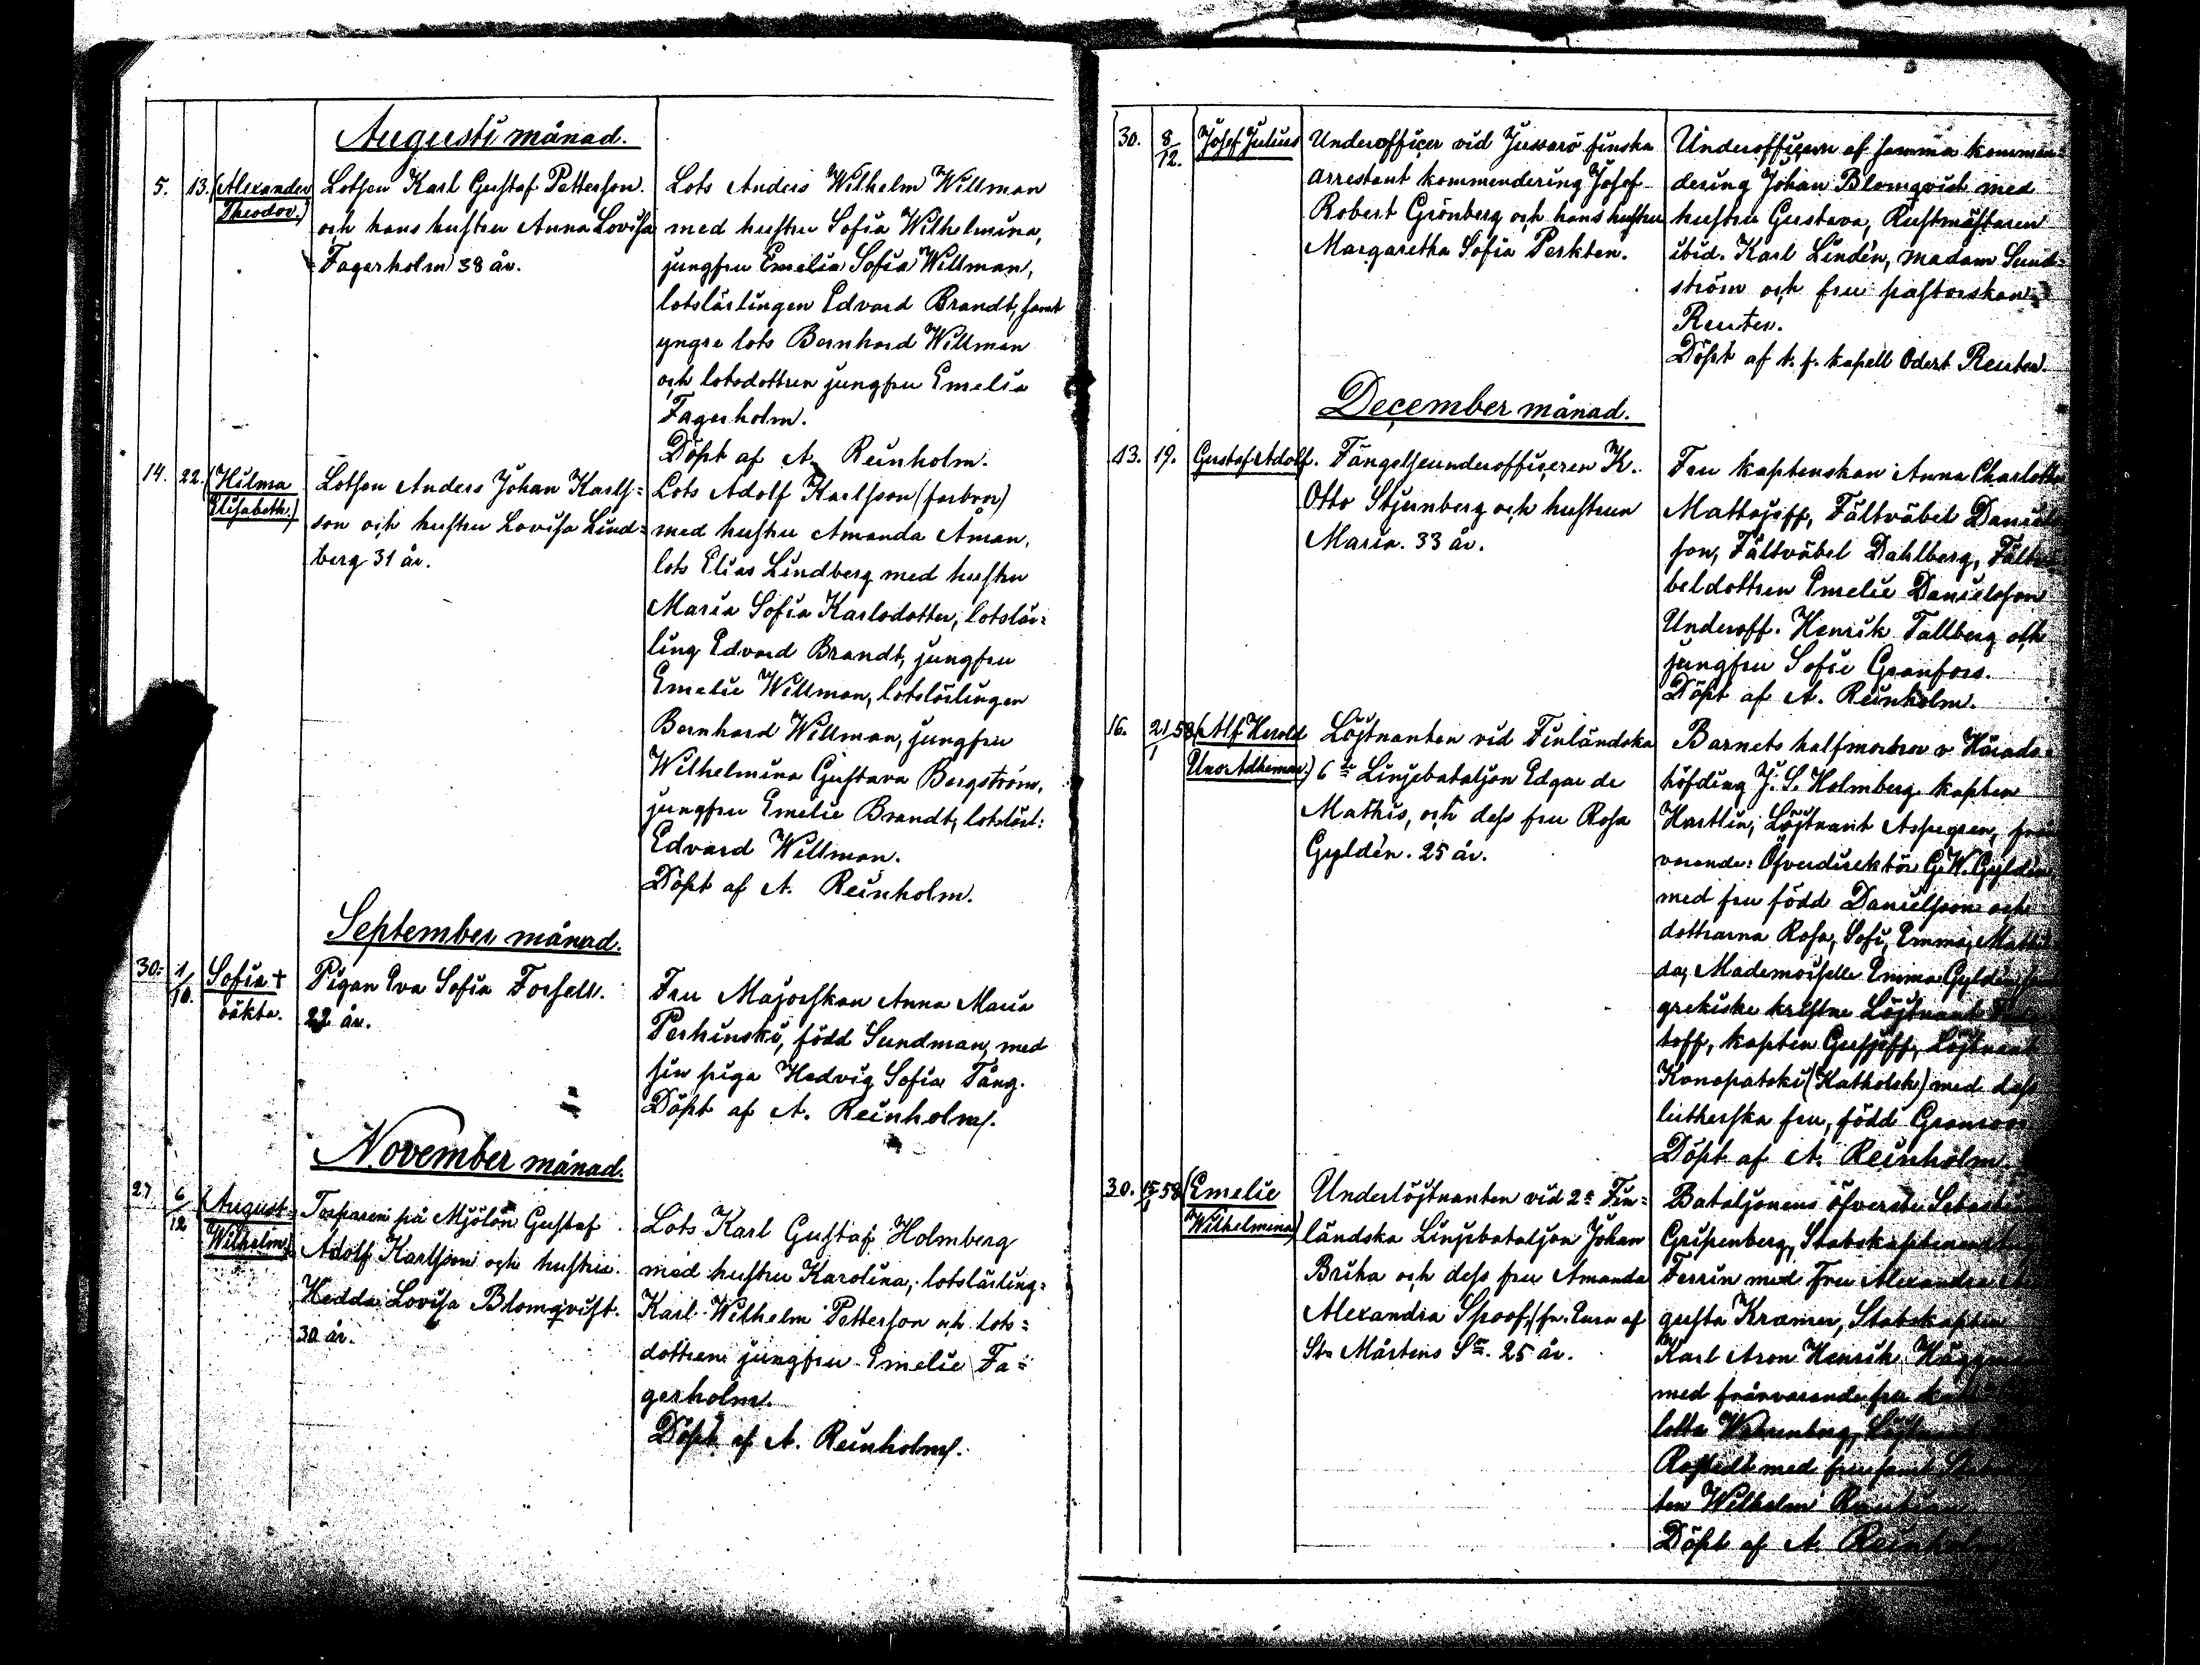 Augusti månad.
5. 13. (Alexander Theodor.)
Lotsen Karl Gustaf Petterson
och hans hustru Anna Lovisa
Fagerholm 38 år.
Lots Anders Wilhelm Willman
med hustru Sofia Wilhelmina,
jungfru Emelia Sofia Willman,
lotslärlingen Edvard Brandt, samt
yngre lots Bernhard Willman
och lotsdottren jungfru Emelia
Fagerholm.
Döpt af A. Reinholm.
14. 22. (Hilma Elisabeth.)
Lotsen Anders Johan Karls=
son och hustru Lovisa Lind=
berg 31 år.
Lots Adolf Karlsson (farbror)
med hustru Amanda Åman,
lots Elias Lindberg med hustru
Maria Sofia Karlsdotter, lotslär=
ling Edvard Brandt, jungfru
Emelie Willman, lotslärlingen
Bernhard Willman, jungfru
Wilhelmina Gustava Bergström,
jungfru Emelie Brandt, lotslärl:
Edvard Willman.
Döpt af A. Reinholm.
September månad.
30. 1/10. Sofia +
oäkta.
Pigan Eva Sofia Forsell.
22 år.
Fru Majorskan Anna Maria
Pershinski, född Sundman, med
sin piga Hedvig Sofia Tång.
Döpt af A. Reinholm.
November månad.
27. 6/12 (August Wilhelm)
Torparen på Mjölön Gustaf
Adolf Karlsson och hustru
Hedda Lovisa Blomqvist.
30 år.
Lots Karl Gustaf Holmberg
med hustru Karolina, lotslärling=
Karl Wilhelm Petterson och lots=
dottren jungfru Emelie Fa=
gerholm.
Döpt af A. Reinholm.
30. 8/12. Josef Julius
Underofficer vid Jussarö finska
arrestant kommendering Josef
Robert Grönberg och hans hustru
Margaretha Sofia Perkten.
Underofficern af samma kommen=
dering Johan Blomqvist med
hustru Gustava, Rustmästaren
ibid. Karl Lindén, madam Sund=
ström och fru pastorskan
Reuter.
Döpt af t. f. kapell Odert Reuter.
December månad.
13. 19. Gustaf Adolf.
Fängelseunderofficeren K.
Otto Stjernberg och hustrun
Maria. 33 år.
Fru kaptenskan Anna Charlotta
Mattejeff, Fältväbel Daniels
son, Fältväbel Dahlberg, Fältvä
beldottren Emelie Danielsson
Underoff. Henrik Tallberg och
jungfru Sofie Granfors.
Döpt af A. Reinholm.
16. 21/1 58 (Alf Herold Uno Adhemar.)
Löjtnanten vid Finländska
6te Linjebataljon Edgar de
Mathis, och dess fru Rosa
Gyldén. 25 år.
Barnets halfmorbror v. Härads=
höfding J. S. Holmberg, kapten
Hartlin, Löjtnant Aspegren, från
varande: Öfverdirektör C. W. Gyldén
med fru född Danielson och
döttrarna Rosa, Sofi, Emma, Mathil
da, Mademoiselle Emma Gyldén,
grekiske kristne Löjtnant
toff, kapten Gusjeff, Löjtnant
Konopatski (Katholsk) med dess
lutherska fru, född Granroos
Döpt af A. Reinholm.
30. 15/1 58 (Emelie Wilhelmina)
Underlöjtnanten vid 2a Fin=
ländska Linjebataljon Johan
Briha och dess fru Amanda
Alexandra Spoof, fr. Eura af
St. Mårtens Sn. 25 år.
Bataljonens öfverste Sebastian
Gripenberg, Stabskaptenen
Ferrin med Fru Alexandra Au
gusta Kramer, Stabskapten
Karl Aron Henrik Häggman
med frånvarande fru
lotta Wahrenberg, Löjtnant
Rostedt med fru samt
ten Wilhelm
Döpt af A. Reinholm